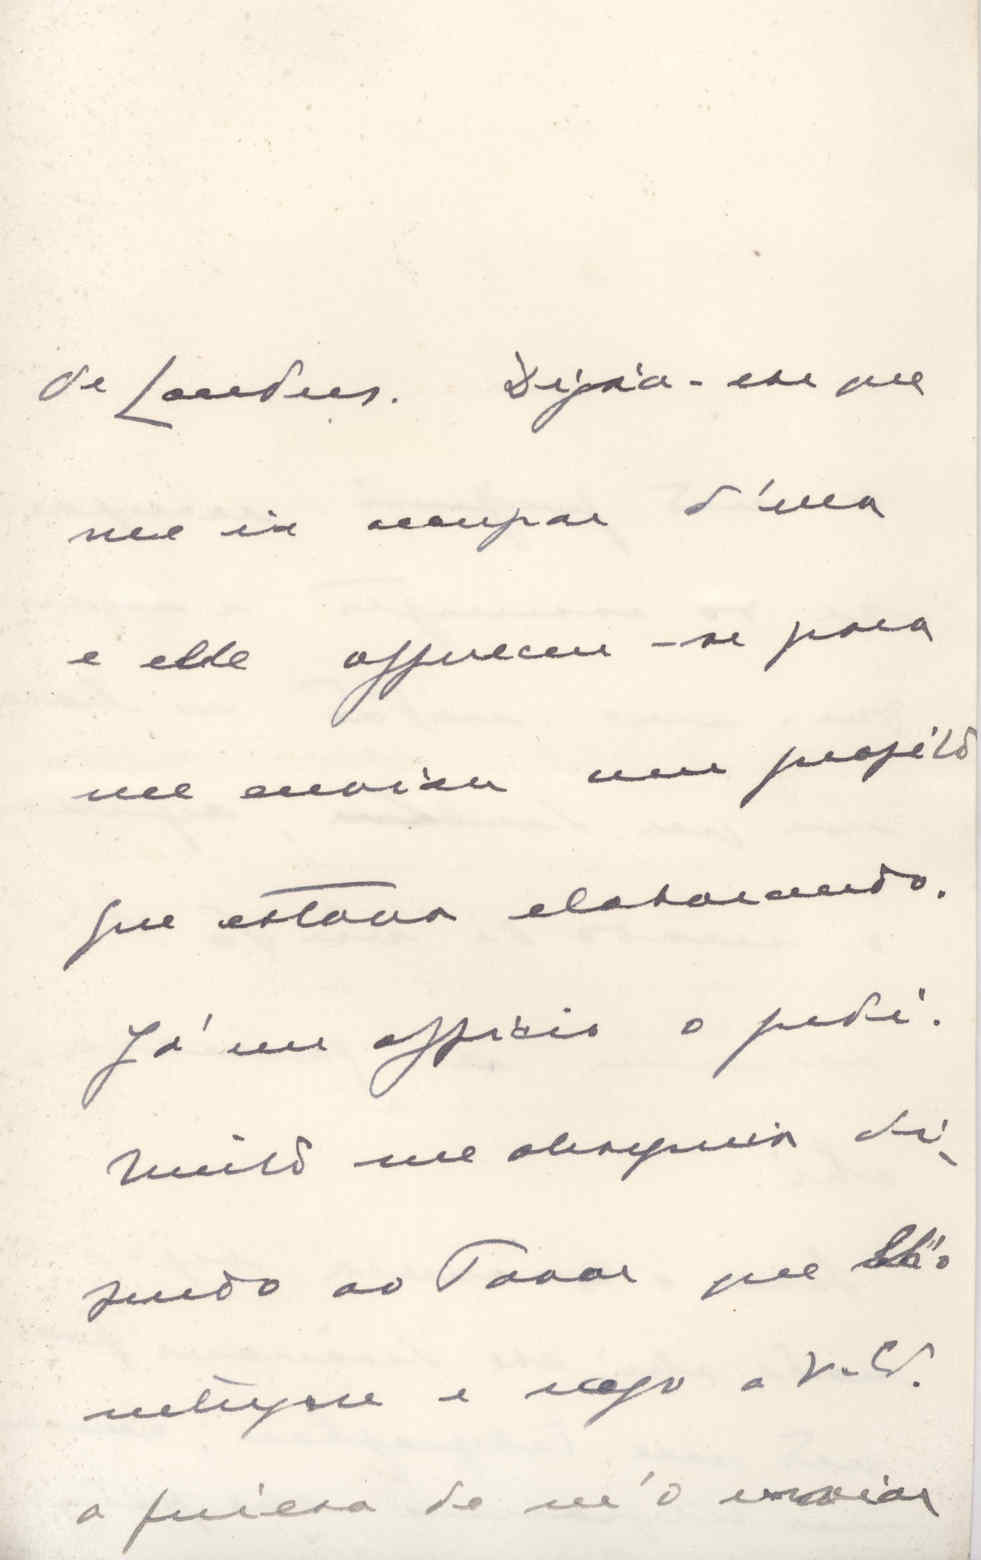 de Londres. Dizia-se que
me ia occupar d'uma
e elle offereceu-se para
me enviar um projecto
que estava elaborando.
Já em officio o pedi.
Muito me obsequeia di-
zendo ao Tovar que lh'o
entregue e rogo a V. Ex.
a fineza de m'o enviar